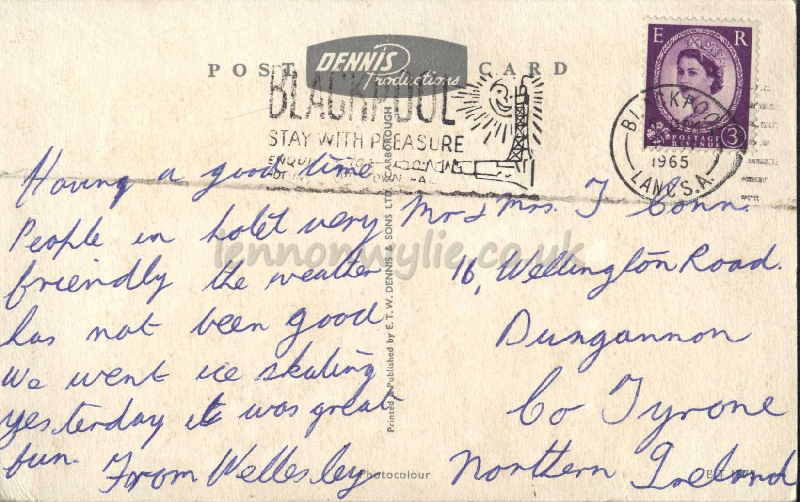 POST CARD
DENNIS
Productions
E R
POSTAGE
REVENUE
3
BLACKPOOL
1965
LANCS.A.
BLACKPOOL
STAY WITH PLEASURE
Having a good time
People in hotel very
friendly the weather
has not been good
We went ice skating
yesterday it was great
fun. From Wellesley
Printed & Published by E. T. W. DENNIS & SONS LTD. SCARBOROUGH
Mr & Mrs. J Conn.
16, Wellington Road.
Dungannon
Co Tyrone
Northern Ireland
Photocolour
lennonwylie.co.uk